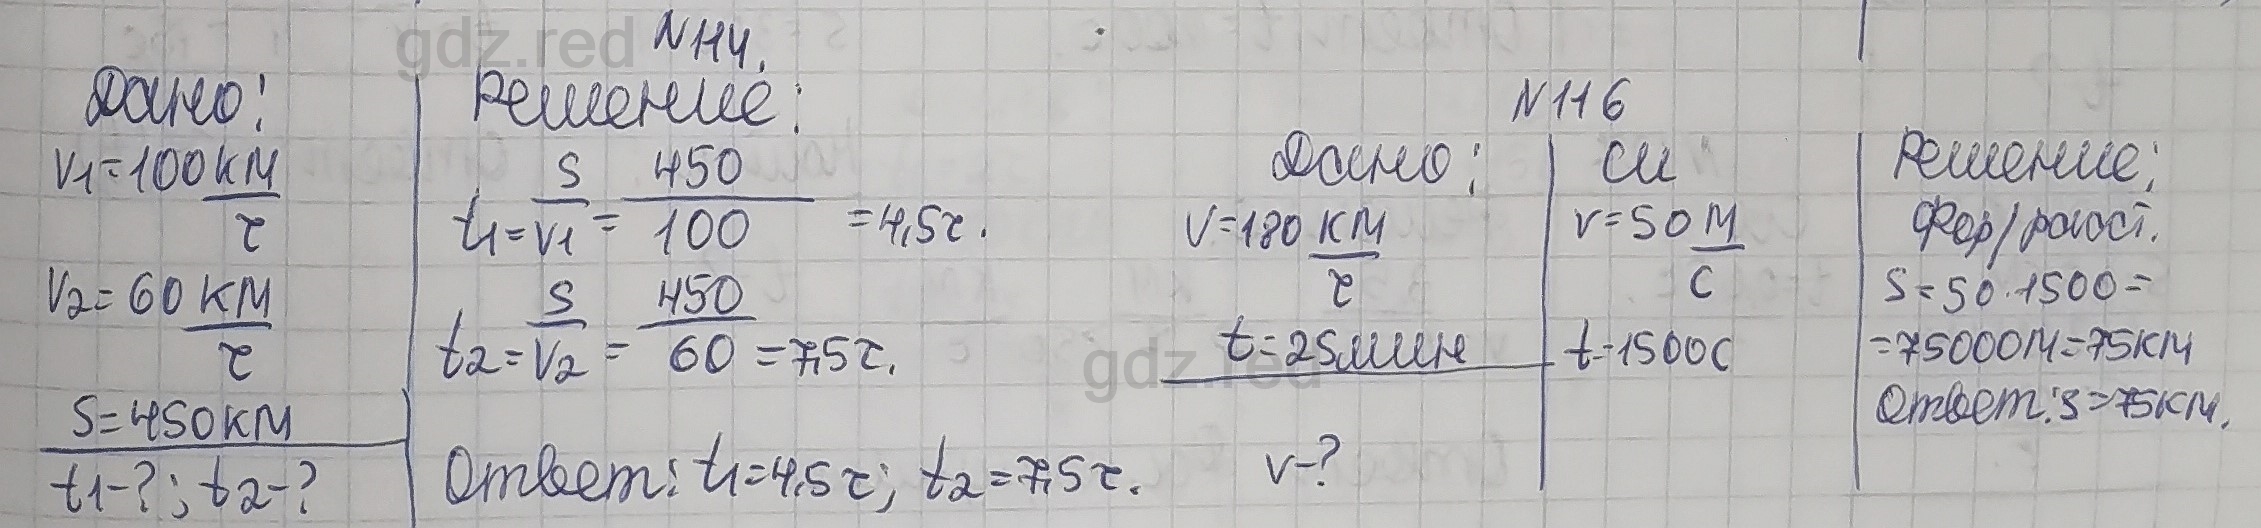 gdz.red
N114.
Дано:
V1=100 км/ч
V2=60 км/ч
S=450км
t1-?; t2-?
Решение:
t1=S/V1=450/100=4,5ч.
t2=S/V2=450/60=7,5ч.
Ответ: t1=4,5ч; t2=7,5ч.
N116
Дано:
V=180 км/ч
t=25мин
V-?
СИ
V=50 м/с
t-1500с
Решение:
S=50·1500=
=75000м=75км
Ответ: S=75км.
gdz.red